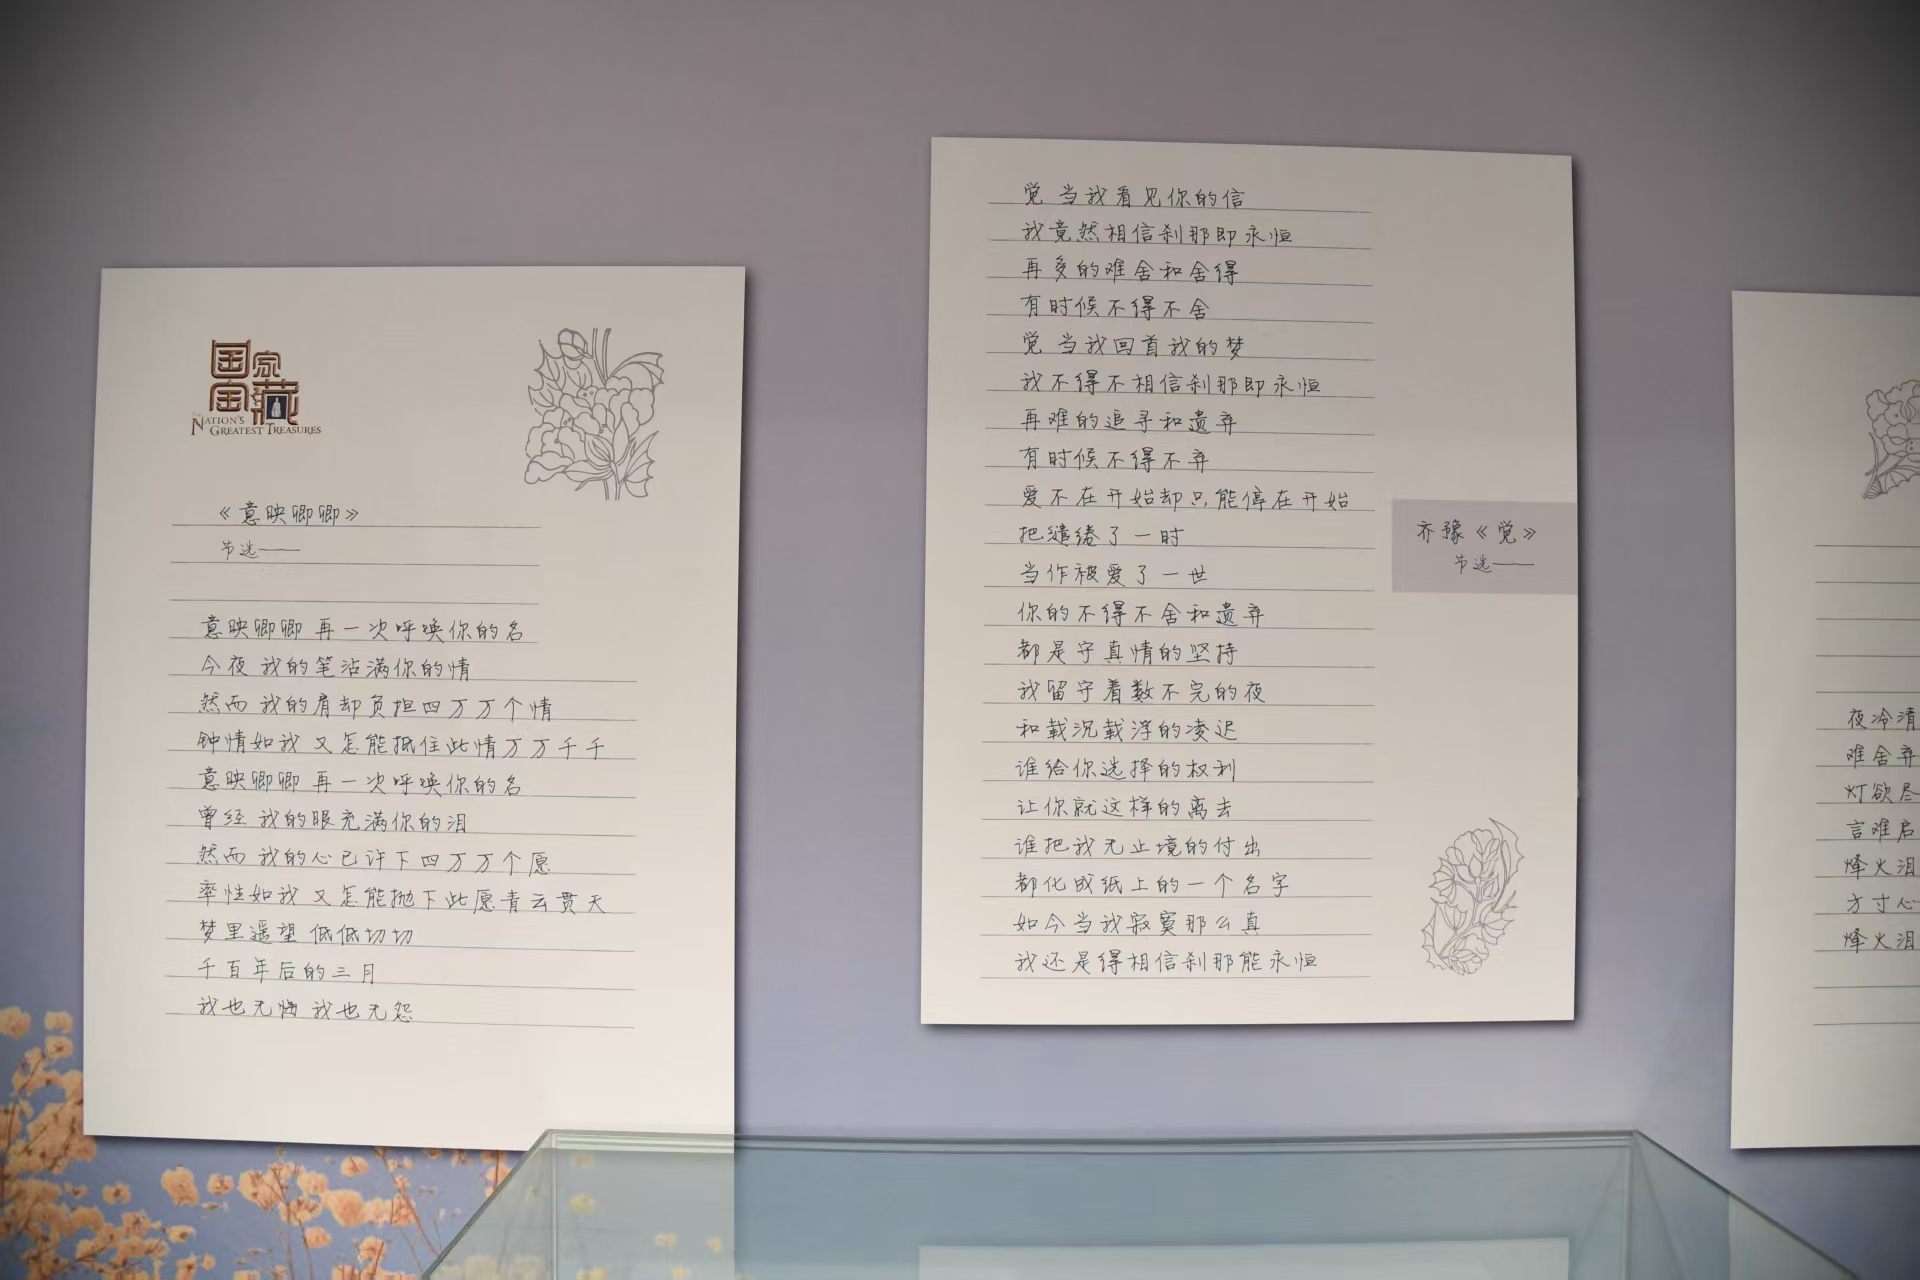 国家宝藏
THE NATION'S GREATEST TREASURES
《意映卿卿》
节选——
意映卿卿 再一次呼唤你的名
今夜 我的笔沾满你的情
然而 我的肩却负担四万万个情
钟情如我 又怎能抵住此情万万千千
意映卿卿 再一次呼唤你的名
曾经 我的眼充满你的泪
然而 我的心已许下四万万个愿
率性如我 又怎能抛下此愿青云贯天
梦里遥望 低低切切
千百年后的三月
我也无悔 我也无怨
觉 当我看见你的信
我竟然相信刹那即永恒
再多的难舍和舍得
有时候不得不舍
觉 当我回首我的梦
我不得不相信刹那即永恒
再难的追寻和遗弃
有时候不得不弃
爱不在开始却只能停在开始
把缱绻了一时
当作被爱了一世
你的不得不舍和遗弃
都是守真情的坚持
我留守着数不完的夜
和载沉载浮的凌迟
谁给你选择的权利
让你就这样的离去
谁把我无止境的付出
都化成纸上的一个名字
如今当我寂寞那么真
我还是得相信刹那能永恒
齐豫《觉》
节选——
夜冷清
难舍弃
灯欲尽
言难启
烽火泪
方寸心
烽火泪